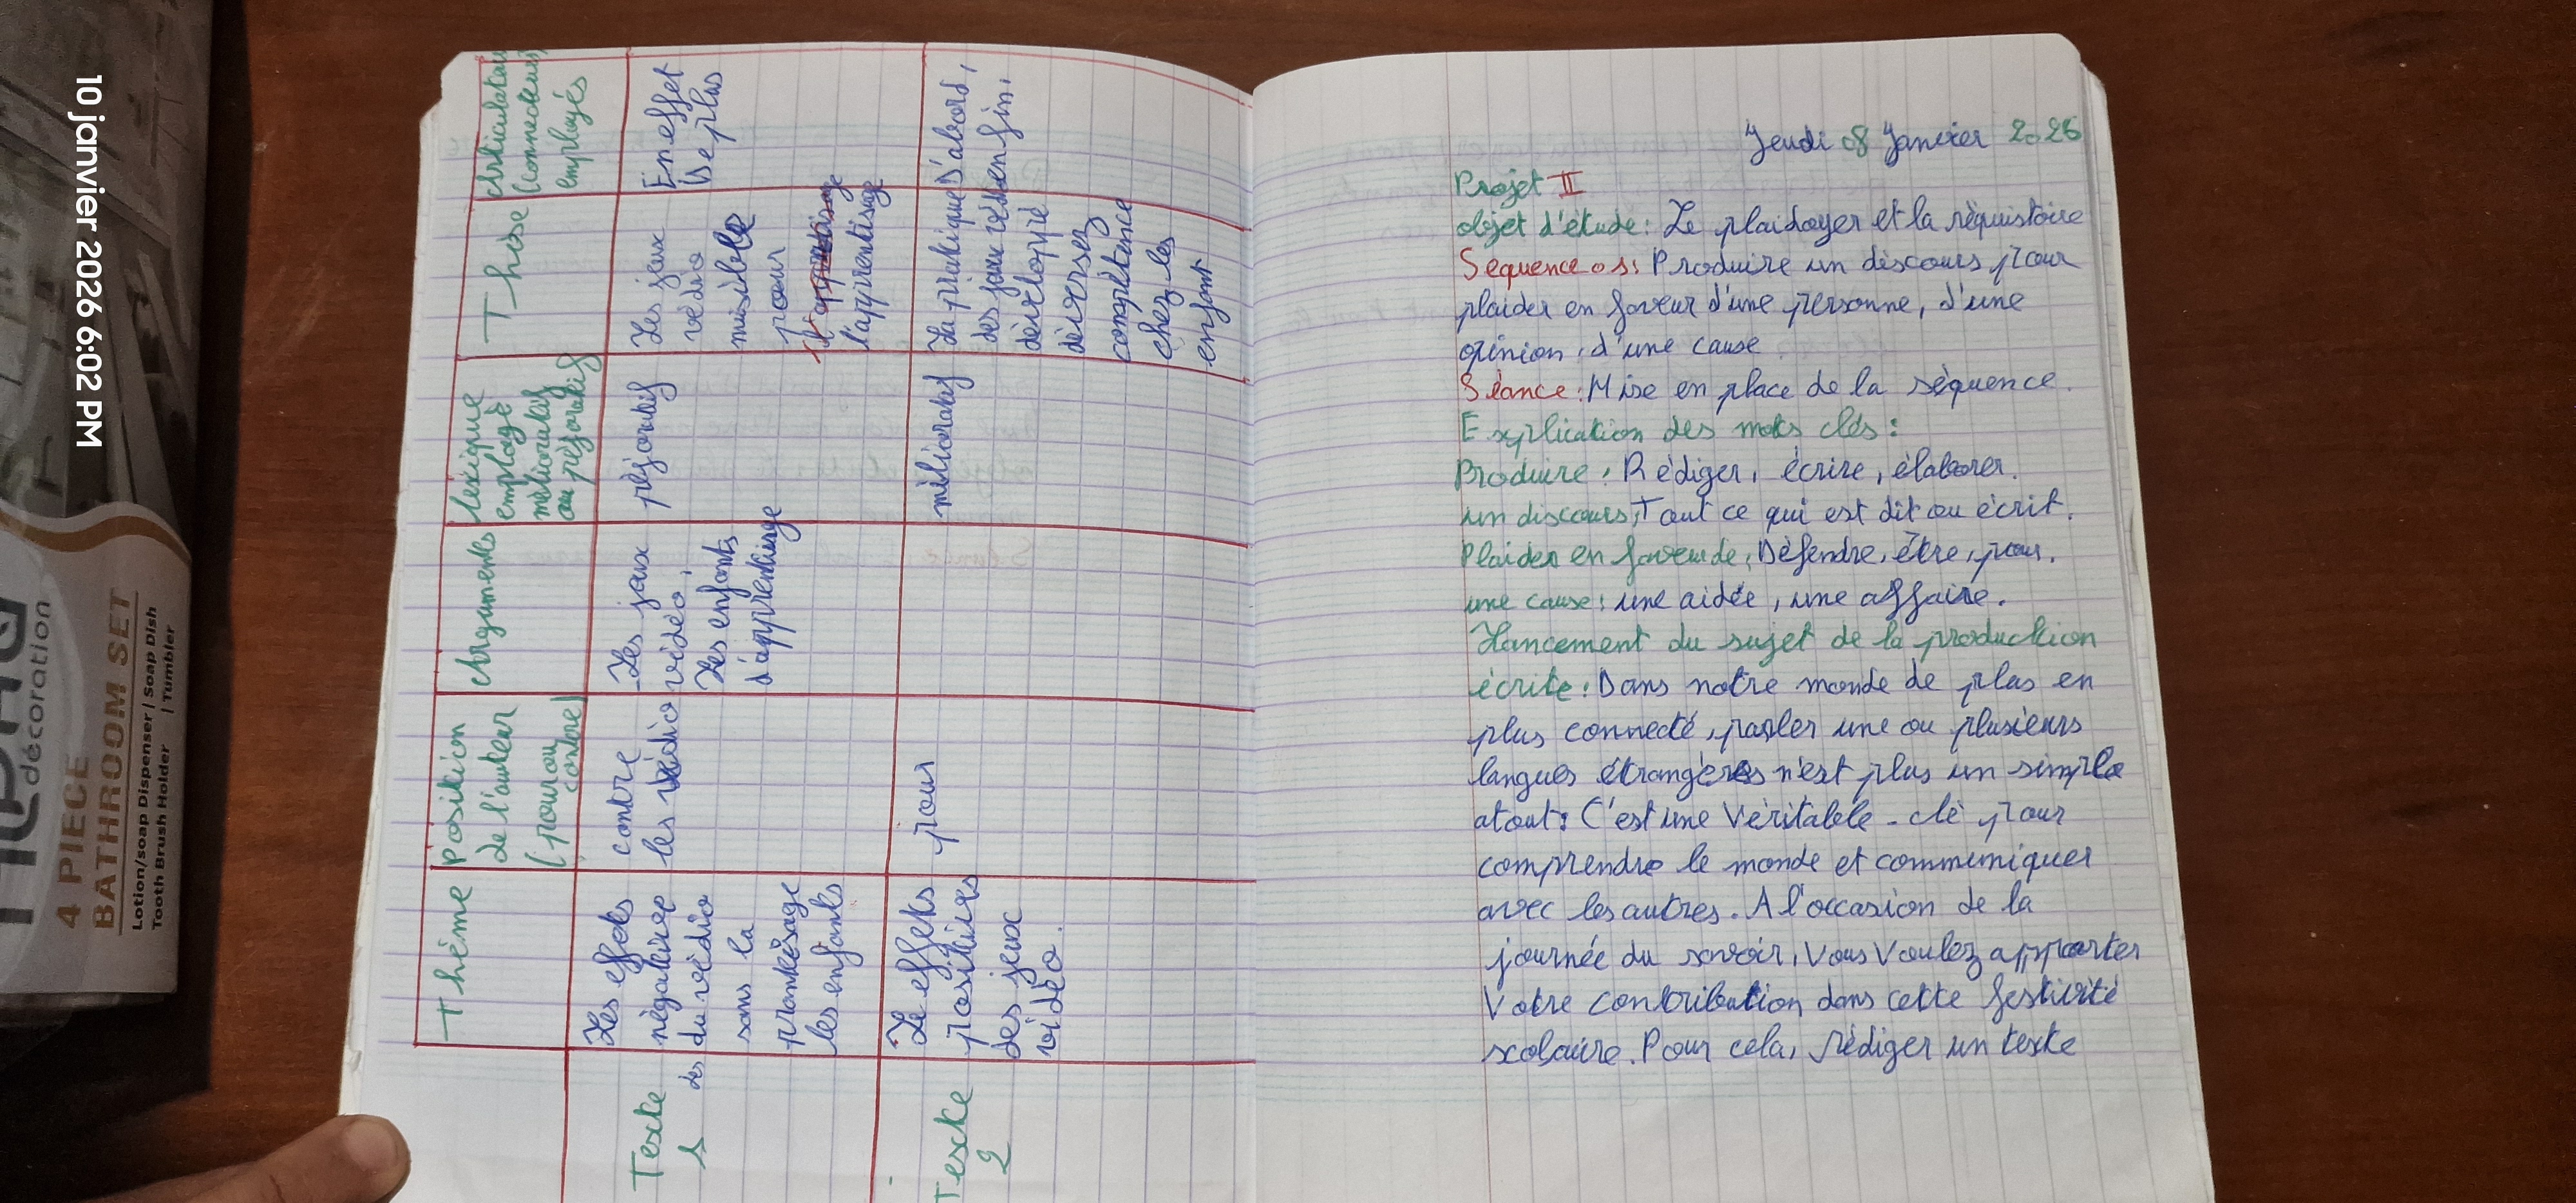 10 janvier 2026 6:02 PM
décoration
4 PIECE
BATHROOM SET
Lotion/soap Dispenser | Soap Dish
Tooth Brush Holder | Tumbler
Thème
Position
de l'auteur
(pour ou
contre)
Arguments
lexique
employé
mélioratif
ou péjoratif
Thèse
Articulateurs
(connecteurs)
employés
Texte
1
Les effets
négatives
des du védio
sans la
les enfants
contre
les védio
-Les jeux
vidéo,
Les enfants
d'apprentissage
péjoratif
Les jeux
védio
misible
pour
l'apprentissage
En effet
De plus
Texte
2
Le effets
positives
des jeux
vidéo.
pour
mélioratif
La pratique
des jeux védeo
dévelopie
déverses
compétance
chez les
enfant
D'abord,
enfin.
Jeudi 08 Janvier 2026
Projet II
objet d'étude: Le plaidoyer et la réquistoire
Séquence 01: Produire un discours pour
plaider en faveur d'une personne, d'une
opinion, d'une cause
Séance: Mise en place de la séquence.
Explication des mots clés:
Produire: Rédiger, écrire, élaborer.
un discours: Tout ce qui est dit ou écrit.
Plaider en faveur de: Défendre, être, pour.
une cause: une aidée, une affaire.
Lancement du sujet de la production
écrite: Dans notre monde de plus en
plus connecté, parler une ou plusieurs
langues étrangères n'est plus un simple
atout: C'est une Véritable - clé pour
comprendre le monde et communiquer
avec les autres. A l'occasion de la
journée du savoir, Vous Voulez apporter
Votre contribution dans cette festivité
scolaire. Pour cela, rédiger un texte